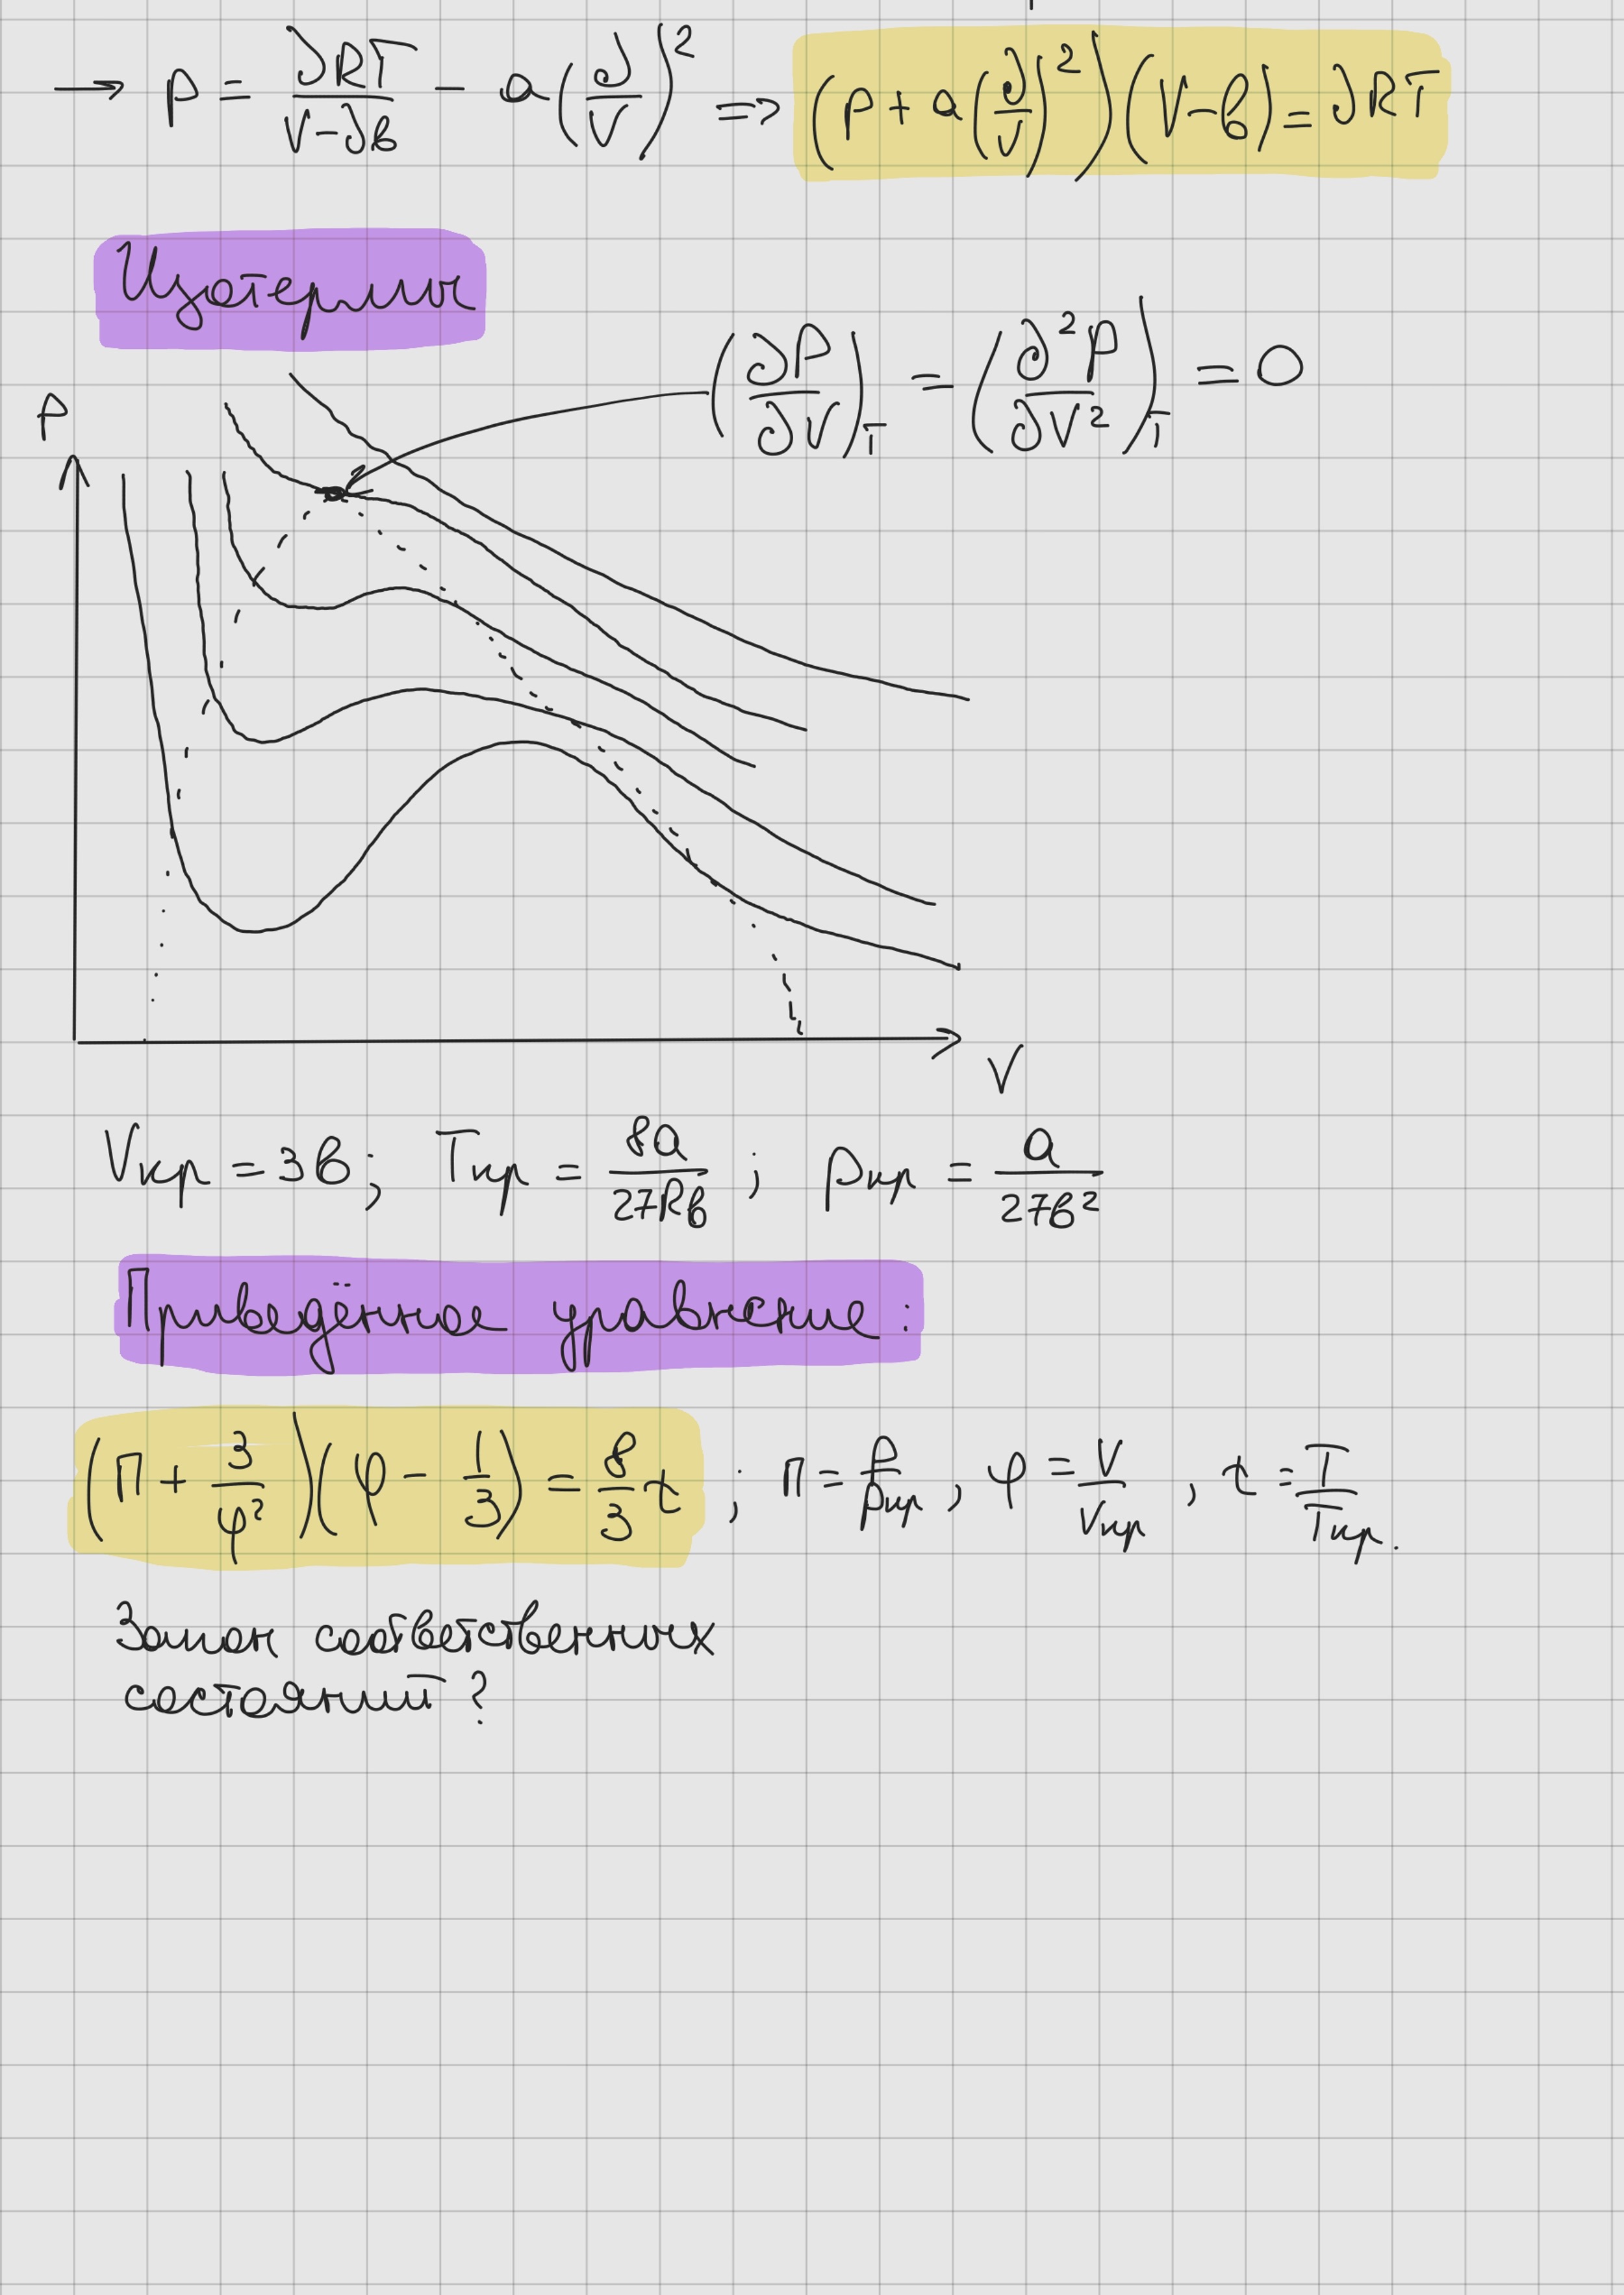 → p = νRT/(V-νв) - a(ν/V)² => (p + a(ν/V)²)(V-в) = νRT
Изотермы
(∂P/∂V)_T = (∂²P/∂V²)_T = 0
P
V
Vкр = 3в; Tкр = 8a/27Rв; pкр = a/27в²
Приведённое уравнение:
(π + 3/φ²)(φ - 1/3) = 8/3 τ; π = p/pкр, φ = V/Vкр, τ = T/Tкр.
Закон соответственных
состояний?